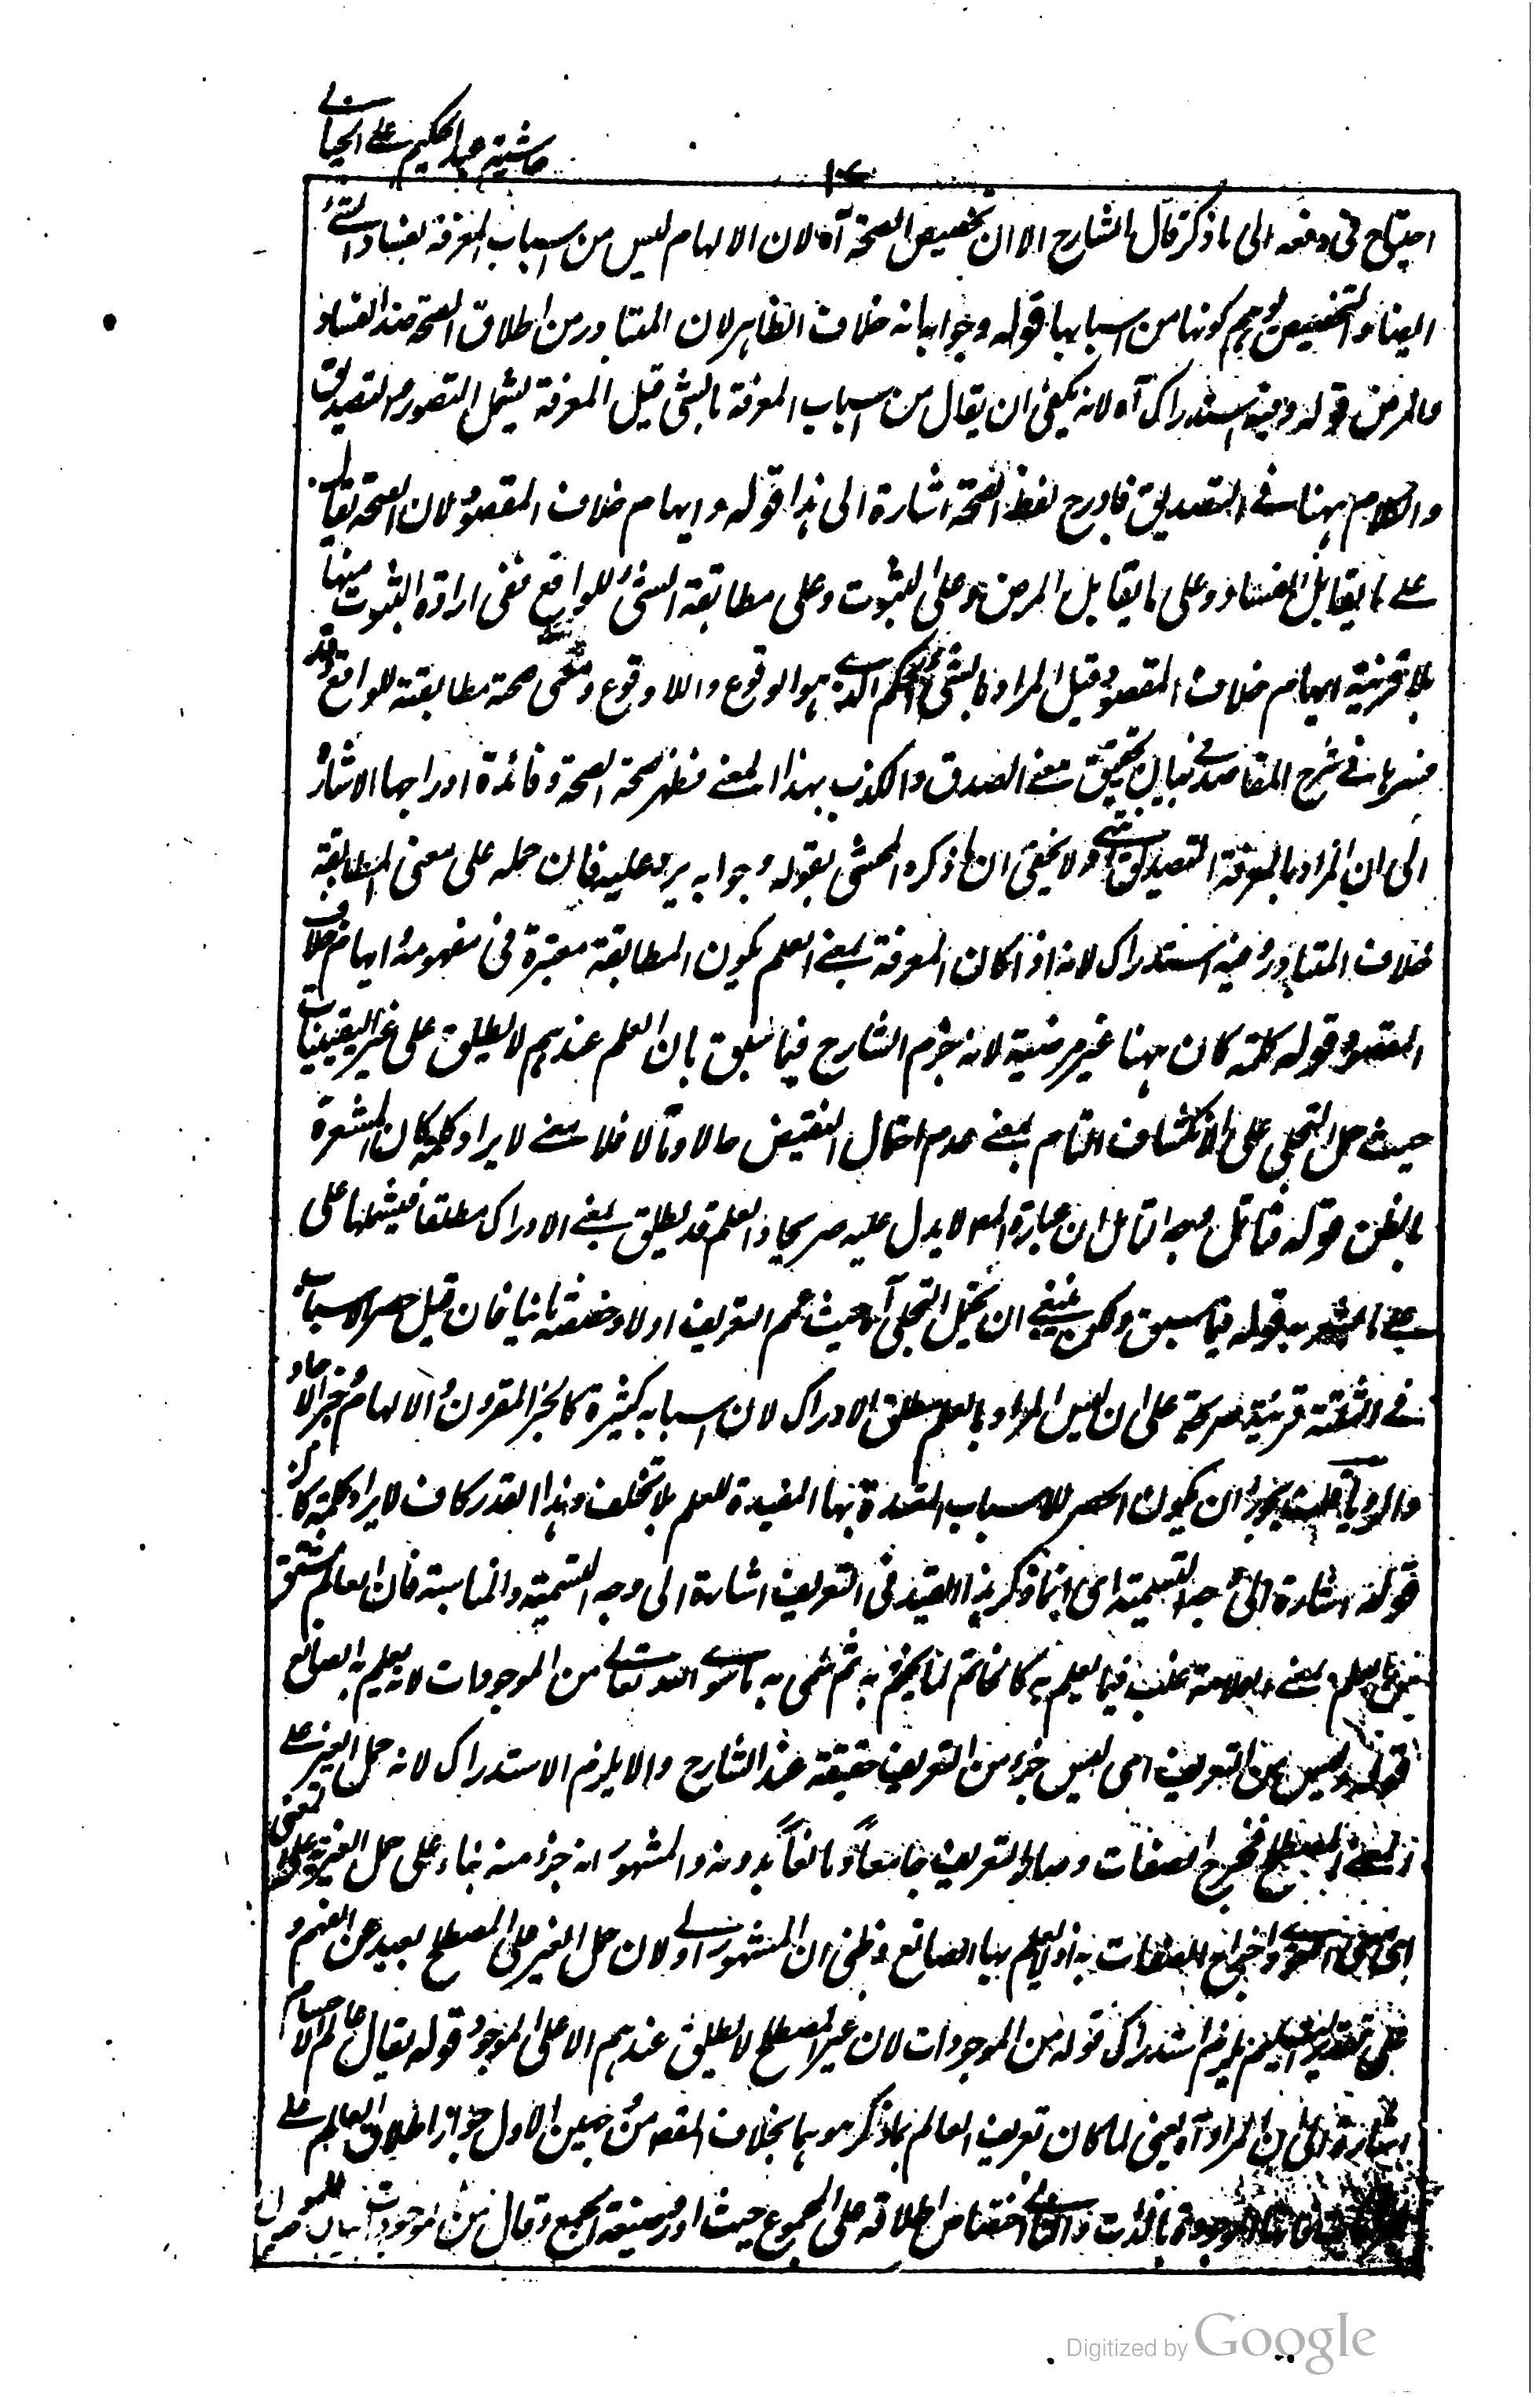 حاشيه عبد الحكيم على الخيالي
١٤
احتياج فى دفعه الى ما ذكر قال الشارح الا ان تخصيص الصحة آه لان الالهام ليس من اسباب المعرفة بفساد الشئ
ايضا والتخصيص يوهم كونها من اسبابها قوله وجوابه انه خلاف الظاهر لان المتبادر من اطلاق الصحة ضد الفساد
والمرض قوله وفيه استدراك آه لانه يكفى ان يقال من اسباب المعرفة بالشئ قيل المعرفة يشمل التصور والتصديق
والكلام ههنا فى التصديق فادرج لفظ الصحة اشارة الى هذا قوله وايهام خلاف المقصود لان الصحة يقال
على ما يقابل الفساد وعلى ما يقابل المرض وعلى الثبوت وعلى مطابقة الشئ للواقع ففى ارادة الثبوت منها
بلا قرينة ايهام خلاف المقصود وقيل المراد بالشئ الحكم الذى هو الوقوع واللا وقوع ومعنى صحة مطابقته للواقع وقد
فسرها فى شرح المقاصد فى بيان تحقيق معنى الصدق والكذب بهذا المعنى فظهر صحة الصحة وفائدة ادراجها الاشارة
الى ان المراد بالمعرفة التصديق انتهى ولا يخفى ان ما ذكره المحشى بقوله وجوابه يرد عليه فان حمله على معنى المطابقة
خلاف المتبادر وفيه استدراك لانه اذا كان المعرفة بمعنى العلم يكون المطابقة معتبرة فى مفهومه وايهام خلاف
المقصود قوله كلمة كان ههنا غير مرضية لانه جزم الشارح فيما سبق بان العلم عندهم لا يطلق على غير اليقينيات
حيث حمل التجلى على الانكشاف التام بمعنى عدم احتمال النقيض حالا ومآلا فلا معنى لايراد كلمة كان المشعرة
بالظن قوله فتأمل وجه التأمل ان عبارة المصـ لا يدل عليه صريحا والعلم قد يطلق بمعنى الادراك مطلقا فيشملها على
على ما اشعر به قوله فيما سبق ولكن ينبغى ان يحمل التجلى آه حيث عمم التعريف اولا وخصصه ثانيا فان قيل حصر الاسباب
فى الثلثة قرينة صريحة على ان ليس المراد بالعلم مطلق الادراك لان اسبابه كثيرة كالخبر المقرون والالهام وخبر الآحاد
والرويا قلت يجوز ان يكون الحصر للاسباب المعتدة بها المفيدة للعلم بلا تخلف وهذا القدر كاف لايراد كلمة كان
قوله اشارة الى وجه التسمية اى انما ذكر هذا القيد فى التعريف اشارة الى وجه التسمية والمناسبة فان العالم مشتق
من العلم بمعنى العلامة غلب فيما يعلم به كالخاتم لما يختم به ثم سمى به ما سوى الله تعالى من الموجودات لانه يعلم به الصانع
قوله وليس من التعريف اى ليس جزء من التعريف حقيقة عند الشارح والا يلزم الاستدراك لانه حمل الغير على
المعنى المصطلح فخرج الصفات وصار التعريف جامعاً ومانعاً بدونه والمشهور انه جزء منه بناء على حمل الغيرية على المعنى
واخراج الصفات به اذ لا يعلم بها الصانع وظنى ان المشهور اولى لان حمل الغير على المصطلح بعيد عن الفهم و
على تقدير التسليم يلزم استدراك قوله من الموجودات لان غير المصطلح لا يطلق عندهم الا على الموجود قوله يقال عالم الاجسام
اشارة الى ان المراد آه يعنى لما كان تعريف العالم بما ذكر موهما بخلاف المقصـ من وجهين الاول جواز اطلاق العالم على
بالذات والثانى اختصاص اطلاقه على المجموع حيث اورد صيغة الجمع وقال من الموجودات